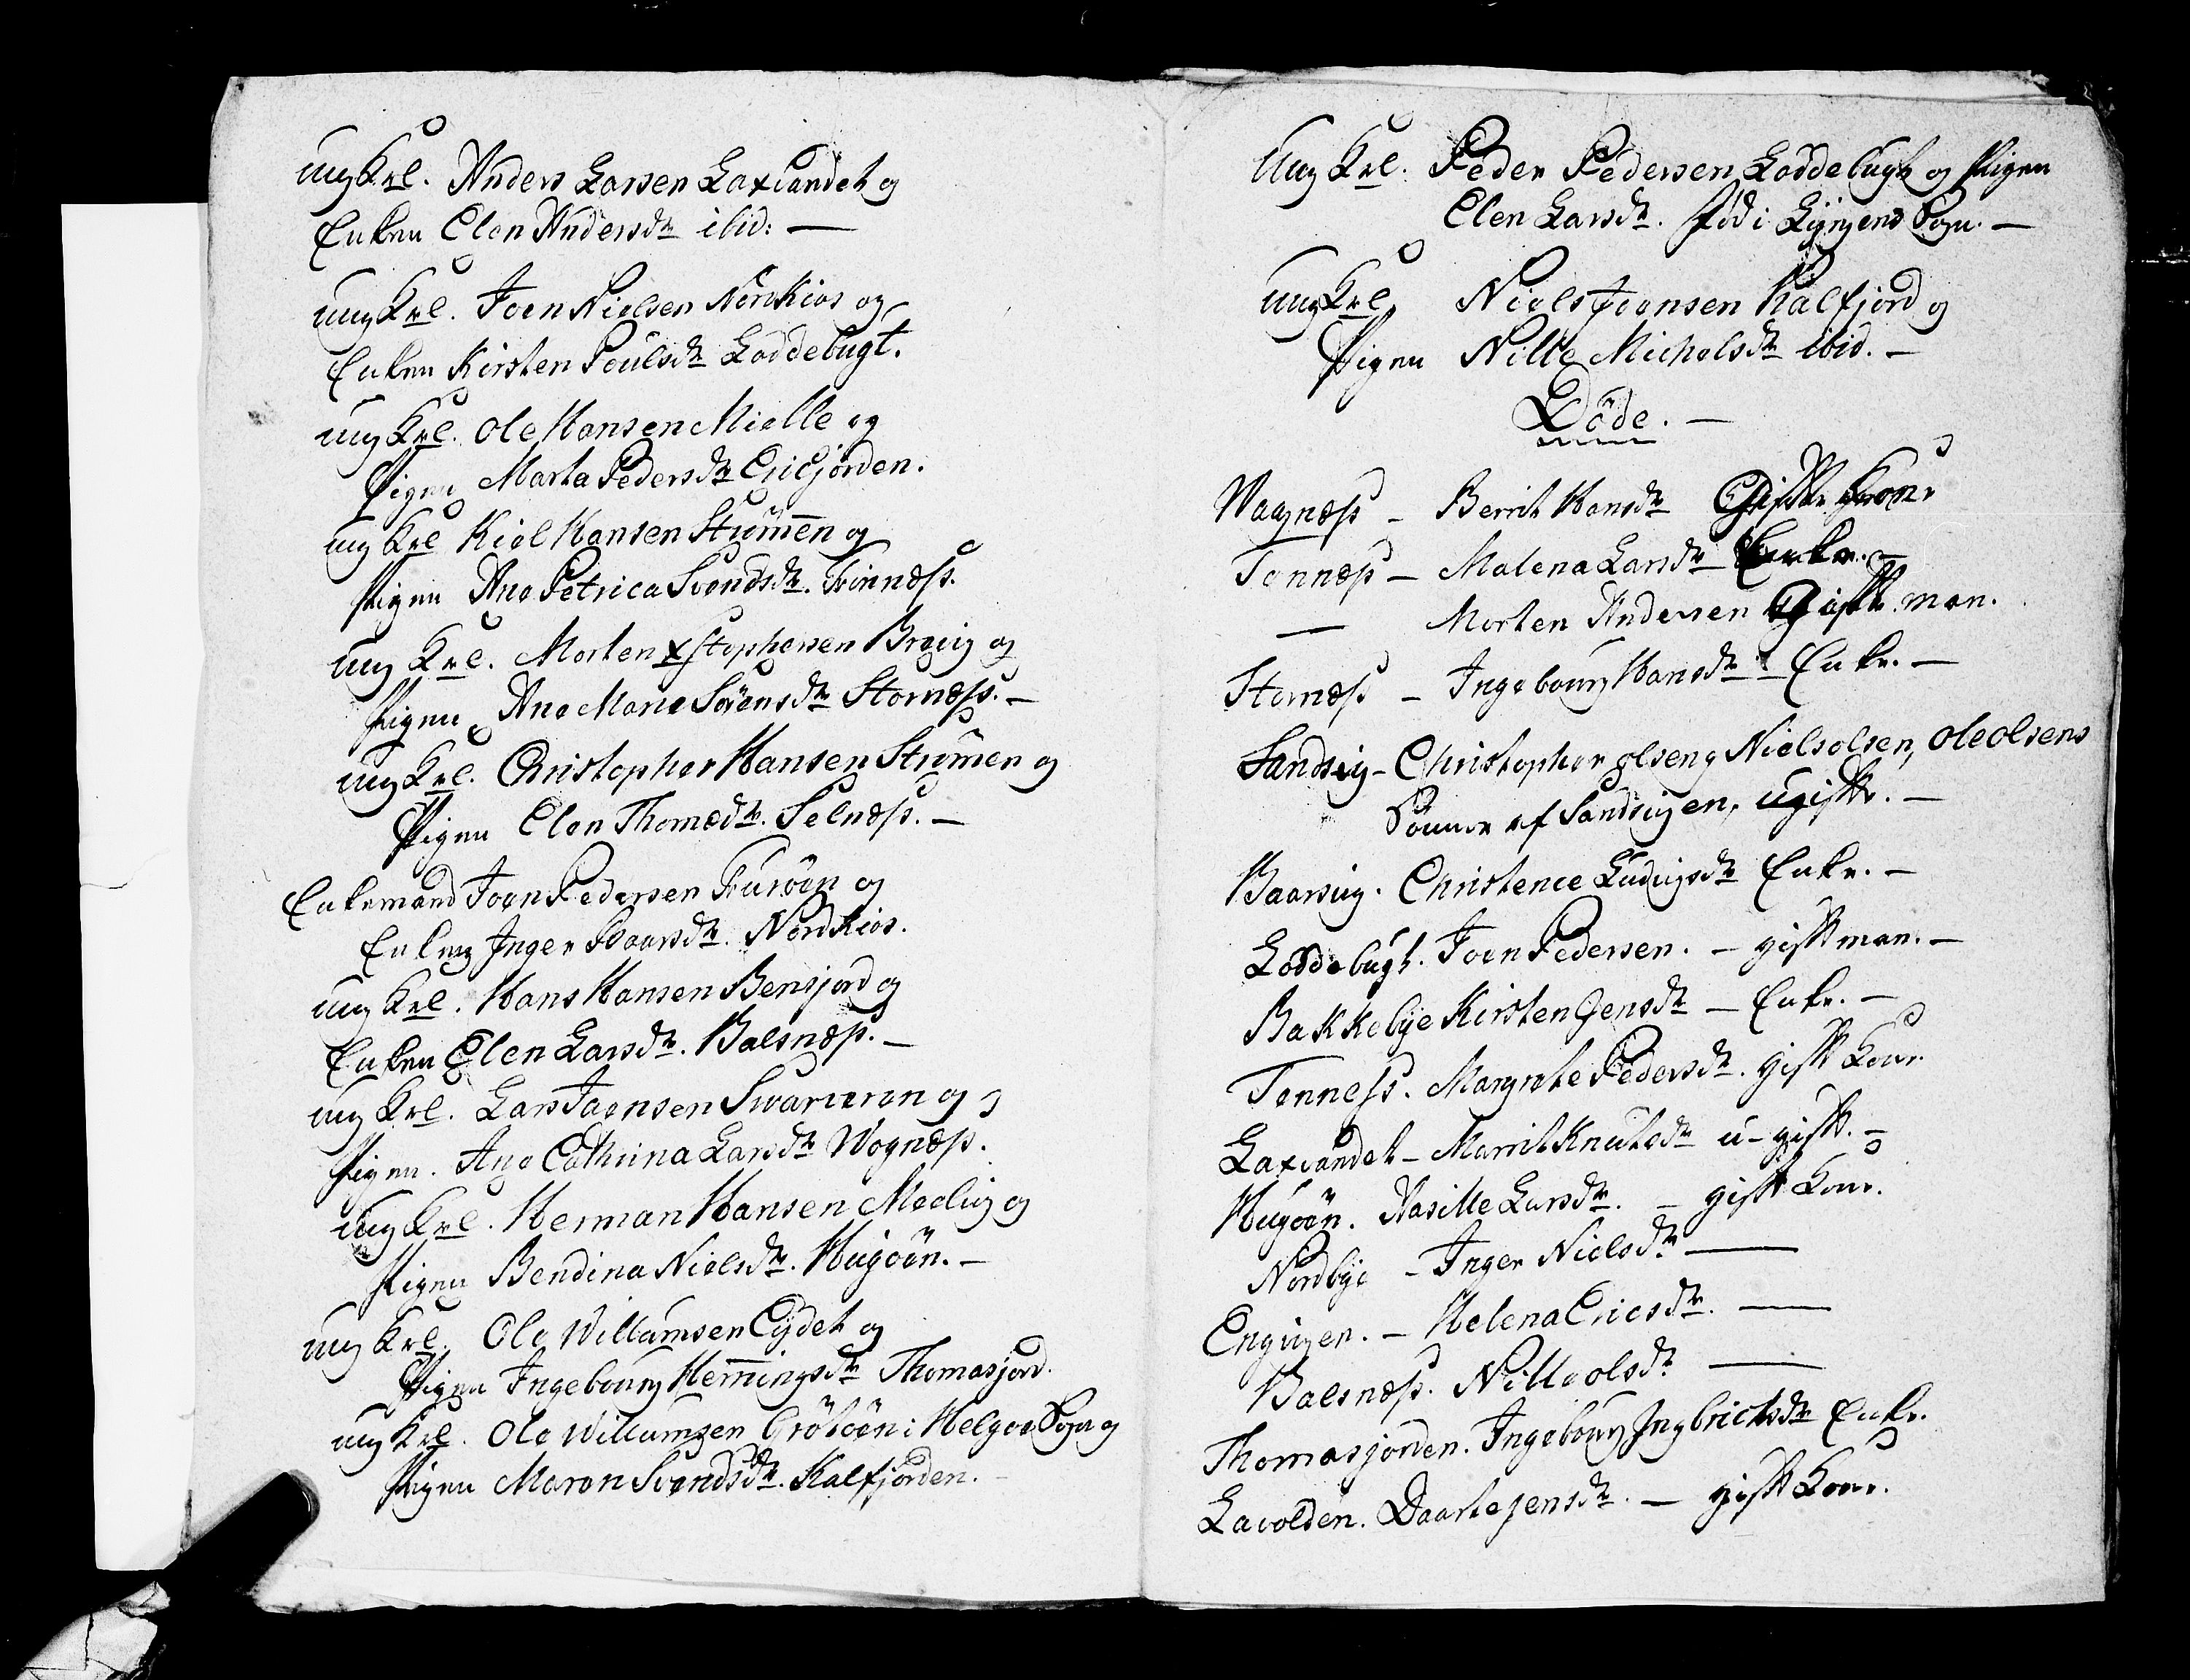 Ung Krl. Anders Larsen Laxvandet og
Enken Elen Andersdr ibid: —
Ung Krl. Joen Nielsen Nordkios og
Enken Kirsten Poulsdr Loddebugt.
Ung Krl. Ole Hansen Mielle og
Pigen Marta Pedersdr Ericfjorden.
Ung Krl Kiel Hansen Strümen og
Pigen Ane Petrica Svendsdr. Finnnæss.
Ung Krl. Morten Xstophersen Brevig og
Pigen Ane Marie Sörensdr Stornæss. —
Ung Krl. Christopher Hansen Strümen og
Pigen Elen Thomædr. Selnæss. —
Enkemand Joen Pedersen Turöen og
Enken Inger Baarsdr. Nordkios.
Ung Krl. Hans Hansen Bensjord og
Enken Elen Larsdr. Balsnæss. —
Ung Krl. Lars Joensen Svarveren og
Pigen. Ane Cathrina Larsdr Wognæss.
Ung Krl. Herman Hansen Medvig og
Pigen Bendina Nielsdr. Hugöen. —
Ung Krl. Ole Willumsen Eydet og
Pigen Ingebourg Hemingsdr Thomasjord.
Ung Krl. Ole Willumsen Grötöen i Helgöe Sogn og
Pigen Maren Svendsdr. Kalfjorden. —
Ung Krl. Peder Pedersen Loddebugt og Pigen
Elen Larsdr. Föd i Lyngens Sogn. —
Ung Krl Niels Joensen Kalfjord og
Pigen Nille Michelsdr ibid. —
Döde. —
Wagnæss — Berrit Hansdr Gift Kone
Tennæss — Malena Larsdr Enke. —
— Morten Andersen Gift man.
Stornæss — Ingebourg Hansdr — Enke. —
Sandvig — Christopher Olsen og Niels Olsen, Ole Olsens
Sönner af Sandvigen, ugifte. —
Baarvig. Christence Ludvigsdr Enke. —
Loddebugt. Joen Pedersen. — gift man. —
Bakkebye Kirsten Jensdr — Enke. —
Tenness. Margrete Pedersdr. gift Kone
Laxvandet — Marrit Knutsdr u-gift. —
Hugöen. Nasille Larsdr. — gift Kone.
Nordbye — Inger Nielsdr —
Engvigen. — Helena Ericsdr. —
Balsnæss. Nille Olsdr —
Thomasjorden. Ingebourg Ingbrictsdr Enke.
Lavolden. Daarte Jensdr. — gift Kone.